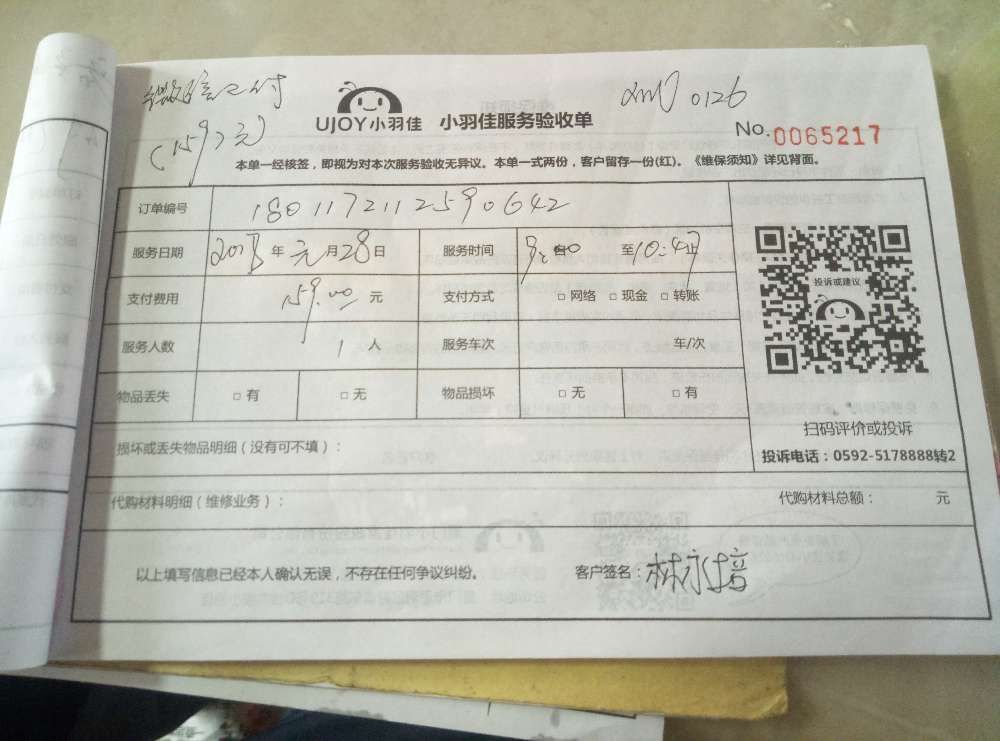 微信支付
(159元)
0126
UJOY小羽佳 小羽佳服务验收单
No.0065217
本单一经核签，即视为对本次服务验收无异议。本单一式两份，客户留存一份(红)。《维保须知》详见背面。
订单编号 1801172112590642
服务日期 2018年元月28日 服务时间 9:00至10:47止
支付费用 159.00元 支付方式 □网络 □现金 □转账
服务人数 1人 服务车次 车/次
物品丢失 □有 □无 物品损坏 □无 □有
投诉或建议
扫码评价或投诉
投诉电话：0592-5178888转2
损坏或丢失物品明细（没有可不填）：
代购材料明细（维修业务）： 代购材料总额： 元
以上填写信息已经本人确认无误，不存在任何争议纠纷。 客户签名：林永培